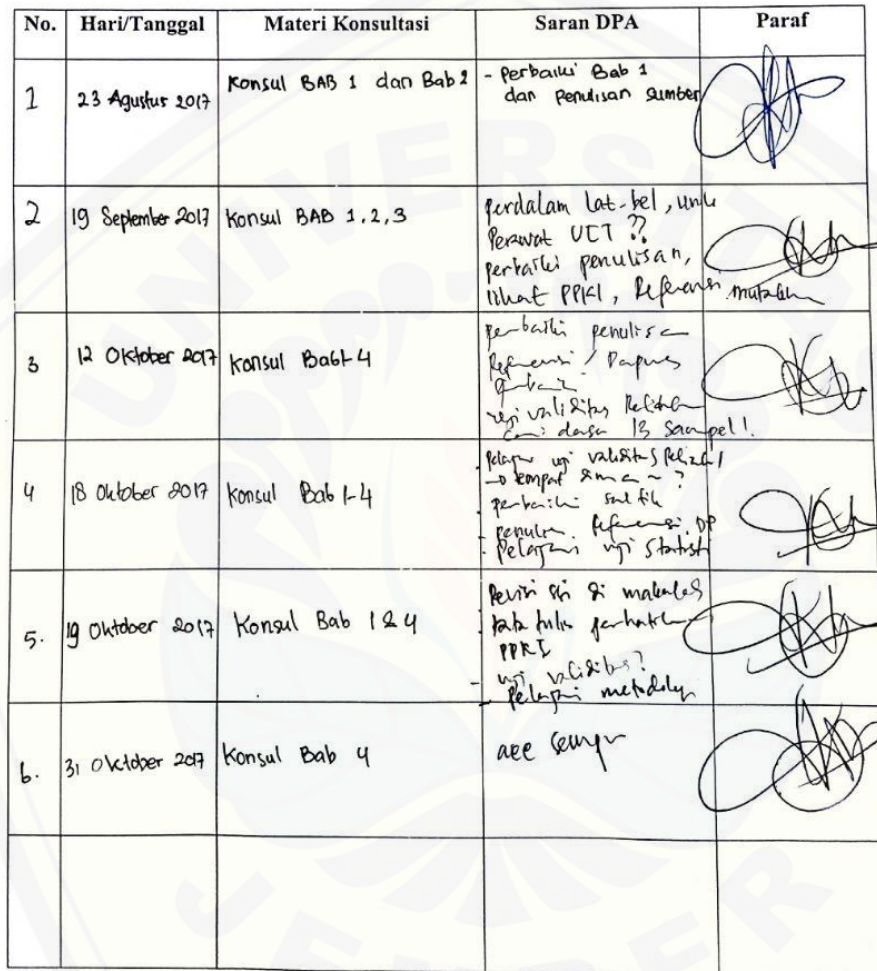 No. Hari/Tanggal Materi Konsultasi Saran DPA Paraf
1 23 Agustus 2017 Konsul BAB 1 dan Bab 2 - Perbaiki Bab 1
dan Penulisan Sumber
2 19 September 2017 Konsul BAB 1,2,3 Perdalam Lat-bel,
Perawat UCT ??
perbaiki penulisan,
lihat PPKI, Referensi mutakhir
3 12 Oktober 2017 Konsul Bab 1-4 perbaiki penulisan
Referensi / Dapus
uji validitas
13 Sampel!
4 18 Oktober 2017 Konsul Bab 1-4 uji validitas
tempat
perbaiki
Referensi, DP
- Pelajari uji Statisti
5. 19 Oktober 2017 Konsul Bab 1 & 4 Revisi
tata tulis perhatikan
PPKI
- uji validitas?
- Pelajari metodologi
6. 31 Oktober 2017 Konsul Bab 4 acc
UNIVERSITAS
JEMBER